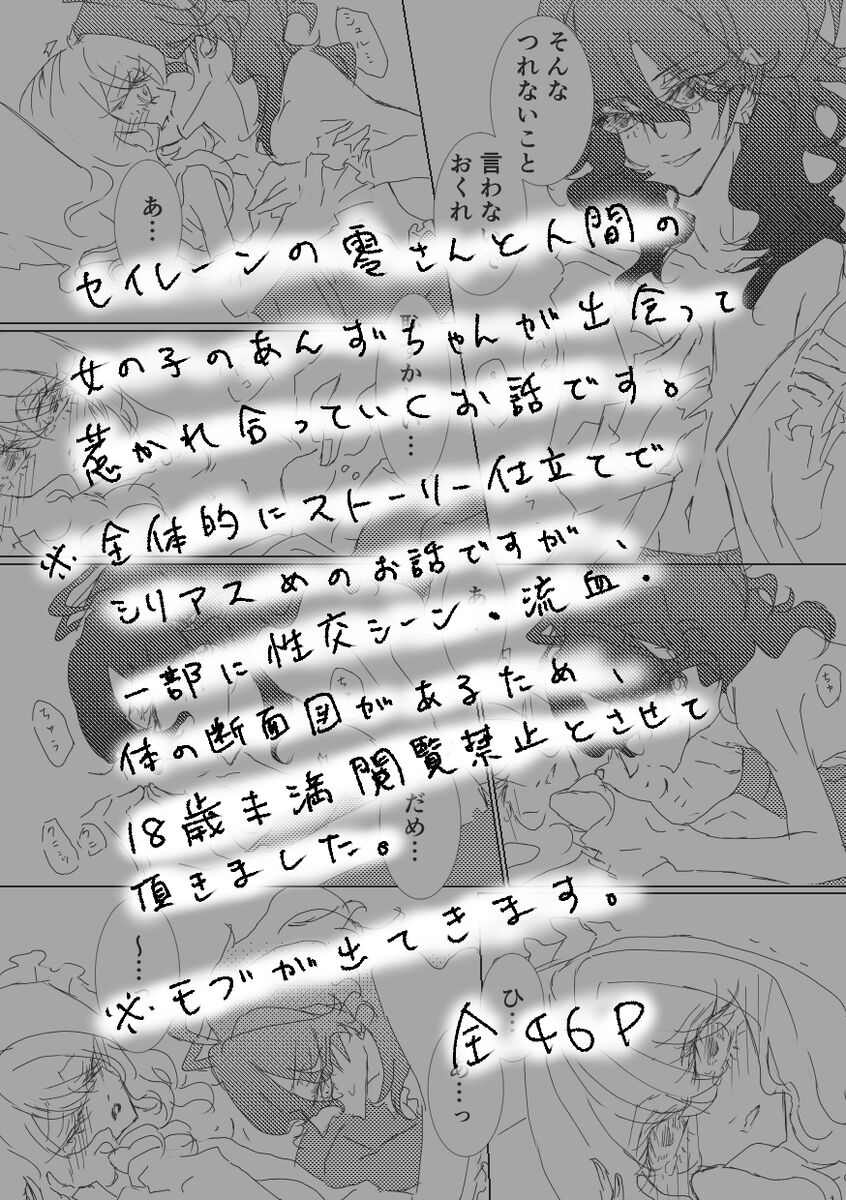 そんな
つれないこと
言わない
おくれ
あ…
セイレーンの零さんと人間の
女の子のあんずちゃんが出会って
惹かれ合っていくお話です。
※全体的にストーリー仕立てで
シリアスめのお話ですが、
一部に性交シーン。流血.
体の断面図があるため、
18歳未満閲覧禁止とさせて
頂きました。
※モブが出てきます。
全46P
ちゅう
ちゅ
だめ…
〜…
ひ…
…っ